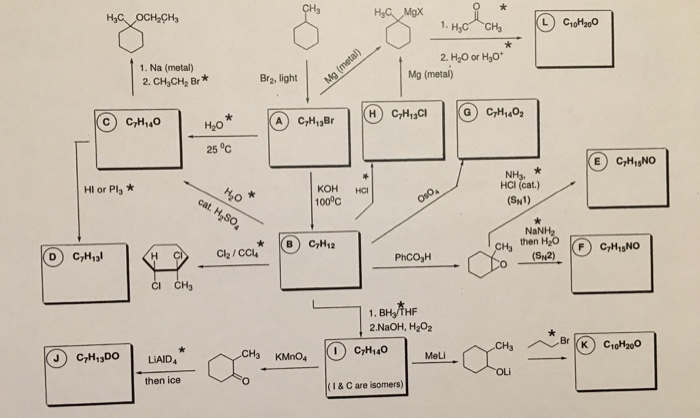 CH₃
H₃C OCH₂CH₃
H₃C MgX
O *
1. H₃C CH₃
2. H₂O or H₃O⁺ *
L C₁₀H₂₀O
1. Na (metal)
2. CH₃CH₂ Br *
Br₂, light
Mg (metal)
Mg (metal)
C C₇H₁₄O
H₂O *
25 ºC
A C₇H₁₃Br
H C₇H₁₃Cl
G C₇H₁₄O₂
E C₇H₁₅NO
HI or PI₃ *
H₂O *
cat. H₂SO₄
KOH
100ºC
HCl *
OsO₄
NH₃, *
HCl (cat.)
(SN1)
*
NaNH₂
then H₂O
(SN2)
D C₇H₁₃I
H Cl
Cl CH₃
Cl₂ / CCl₄ *
B C₇H₁₂
PhCO₃H
CH₃
O
F C₇H₁₅NO
1. BH₃/THF *
2.NaOH, H₂O₂
J C₇H₁₃DO
LiAlD₄ *
then ice
CH₃
O
KMnO₄
I C₇H₁₄O
(I & C are isomers)
MeLi
CH₃
OLi
* Br
K C₁₀H₂₀O